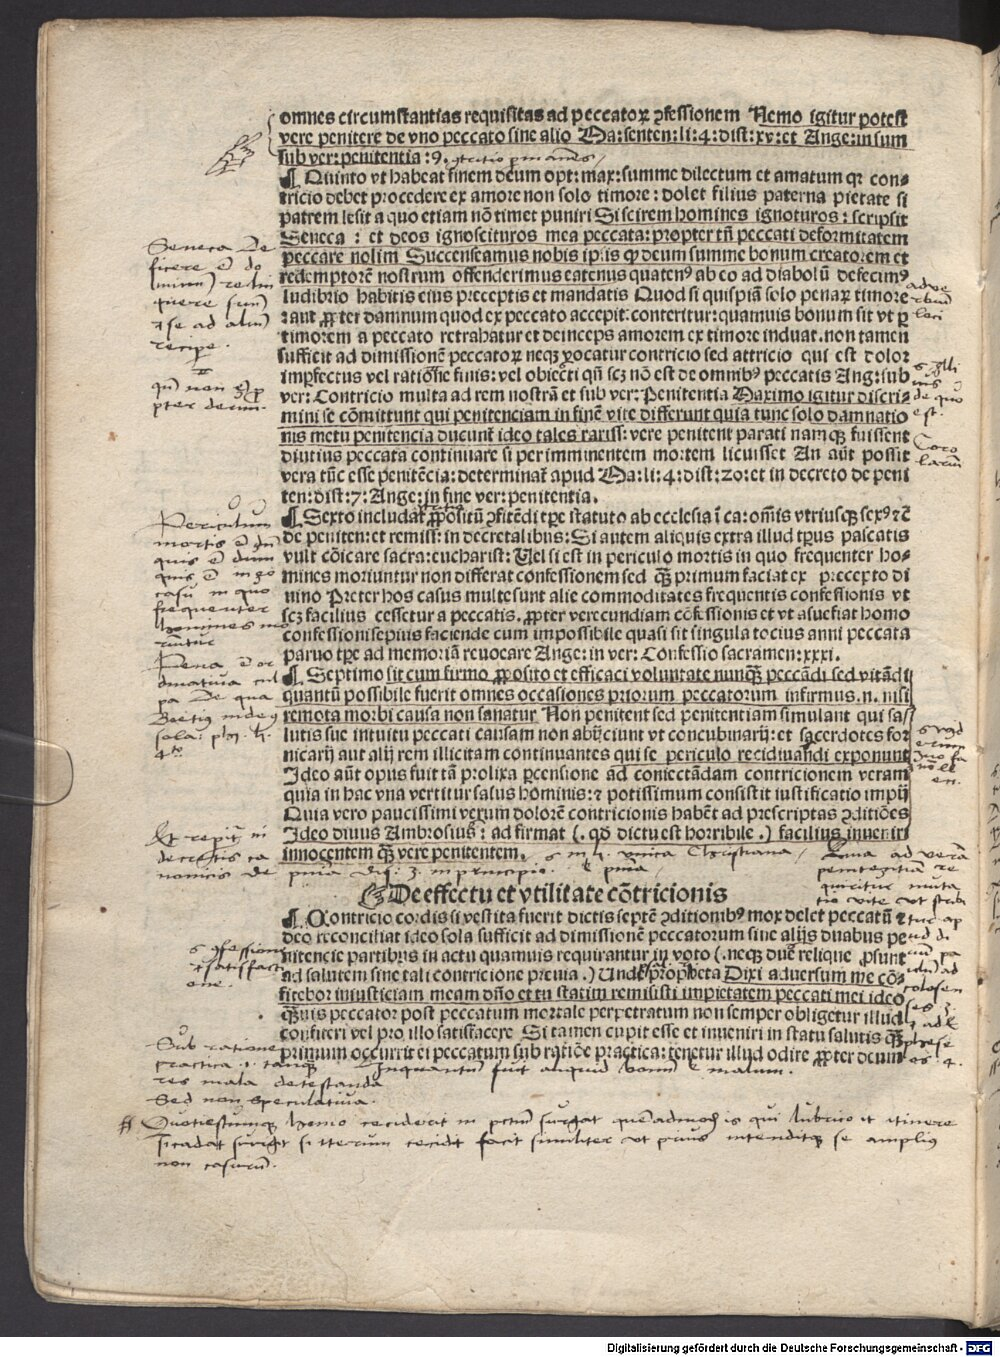 omnes circumstantias requisitas ad peccatoꝝ ꝯfessionem Nemo igitur potest
vere penitere de vno peccato sine alio Ma: senten: li: 4: dist: xv: et Ange: in sum
sub ver: penitentia: 9.
¶ Quinto vt habeat finem deum opt: max: summe dilectum et amatum qꝛ con⸗
tricio debet procedere ex amore non solo timore: dolet filius paterna pietate si
patrem lesit a quo etiam nõ timet puniri Si scirem homines ignoturos: scripsit
Seneca: et deos ignoscituros mea peccata: propter tñ peccati deformitatem
peccare nolim Succenseamus nobis ipsis ꝙ deum summe bonum creatorem et
redemptorẽ nostrum offenderimus eatenus quatenꝰ ab eo ad diabolũ defecimꝰ
ludibrio habitis eius preceptis et mandatis Quod si quispiã solo penaꝝ timore
: aut ꝓpter damnum quod ex peccato accepit: conteritur: quamuis bonum sit vt ꝑ
timorem a peccato retrahatur et deinceps amorem ex timore induat. non tamen
sufficit ad dimissionẽ peccatoꝝ neqꝫ vocatur contricio sed attricio qui est dolor
imperfectus vel ratiõe finis: vel obiecti qñ scꝫ nõ est de omnibꝰ peccatis Ang: sub
ver: Contricio multa ad rem nostrã et sub ver: Penitentia Maximo igitur discri⸗
mini se cõmittunt qui penitenciam in finẽ vite differunt quia tunc solo damnatio
nis metu penitencia ducunt ideo tales rariss: vere penitent parati namqꝫ fuissent
diutius peccata continuare si per imminentem mortem licuisset An aũt possit
vera tũc esse penitẽcia: determinat apud Ma: li: 4: dist: 20: et in decreto de peni
ten: dist: 7: Ange: in fine ver: penitentia.
¶ Sexto includat ꝓpositũ ꝯfitẽdi tꝑe statuto ab ecclesia ĩ ca: omĩs vtriusqꝫ sexꝰ ⁊c̃
de peniten: et remiss: in decretalibus: Si autem aliquis extra illud tp̃us pascatis
vult cõicare sacra: eucharist: Vel si est in periculo mortis in quo frequenter ho⸗
mines moriuntur non differat confessionem sed ꝙ̃ primum faciat ex precepto di
uino Preter hos casus multe sunt alie commoditates frequentis confessionis vt
scꝫ facilius cessetur a peccatis, ꝓpter verecundiam cõfessionis et vt asuefiat homo
confessioni sepius faciende cum impossibile quasi sit singula tocius anni peccata
paruo tꝑe ad memoriã reuocare Ange: in ver: Confessio sacramen: xxxi.
¶ Septimo sit cum firmo ꝓposito et efficaci voluntate nunꝙ̃ peccãdi sed vitãdi
quantũ possibile fuerit omnes occasiones priorum peccatorum infirmus. n. nisi
remota morbi causa non sanatur Non penitent sed penitentiam simulant qui sa⸗
lutis sue intuitu peccati causam non abijciunt vt concubinarij: et sacerdotes for
nicarij aut alij rem illicitam continuantes qui se periculo recidiuandi exponunt
Ideo aũt opus fuit tã prolixa ꝑcensione ad coniectãdam contricionem veram
quia in hac vna vertitur salus hominis: ⁊ potissimum consistit iustificatio impij
Quia vero paucissimi verum dolorẽ contricionis habẽt ad prescriptas ꝯditiões
Ideo diuus Ambrosius: ad firmat (. qð dictu est horribile .) facilius inueniri
innocentem ꝙ̃ vere penitentem.
De effectu et vtilitate cõtricionis
¶ Contricio cordis si vestita fuerit dictis septẽ ꝯditionibꝰ mox delet peccatũ ⁊
deo reconciliat ideo sola sufficit ad dimissionẽ peccatorum sine alijs duabus pe
nitencie partibus in actu quamuis requirantur in voto (. neqꝫ due relique ꝓsunt
ad salutem sine tali contricione preuia .) Unde propheta Dixi aduersum me cõ⸗
fitebor iniusticiam meam dño et tu statim remisisti impietatem peccati mei ideo
ꝙ̃uis peccator post peccatum mortale perpetratum non semper obligetur illud
confiteri vel pro illo satisfacere Si tamen cupit esse et inueniri in statu salutis ꝙ̃
primum occurrit ei peccatum sub ratiõe practica: tenetur illud odire ꝓpter deum
Seneca
quin non ꝓpter deum.
Periculum
mortis
casu in quo
frequenter
homines mo
riuntur
Sub ratione
practica .i. tanqꝫ
res mala detestanda
Sed non speculatiua.
Inquantum fuit aliquid bonum ł malum.
Quotiescumqꝫ homo ceciderit in pctm̃ surgat quẽadmodũ is qui lubrico it itinere
si cadat surgit si iterum cecidit facit similiter vt prius intenditqꝫ se amplius
non casurum.
Digitalisierung gefördert durch die Deutsche Forschungsgemeinschaft - DFG